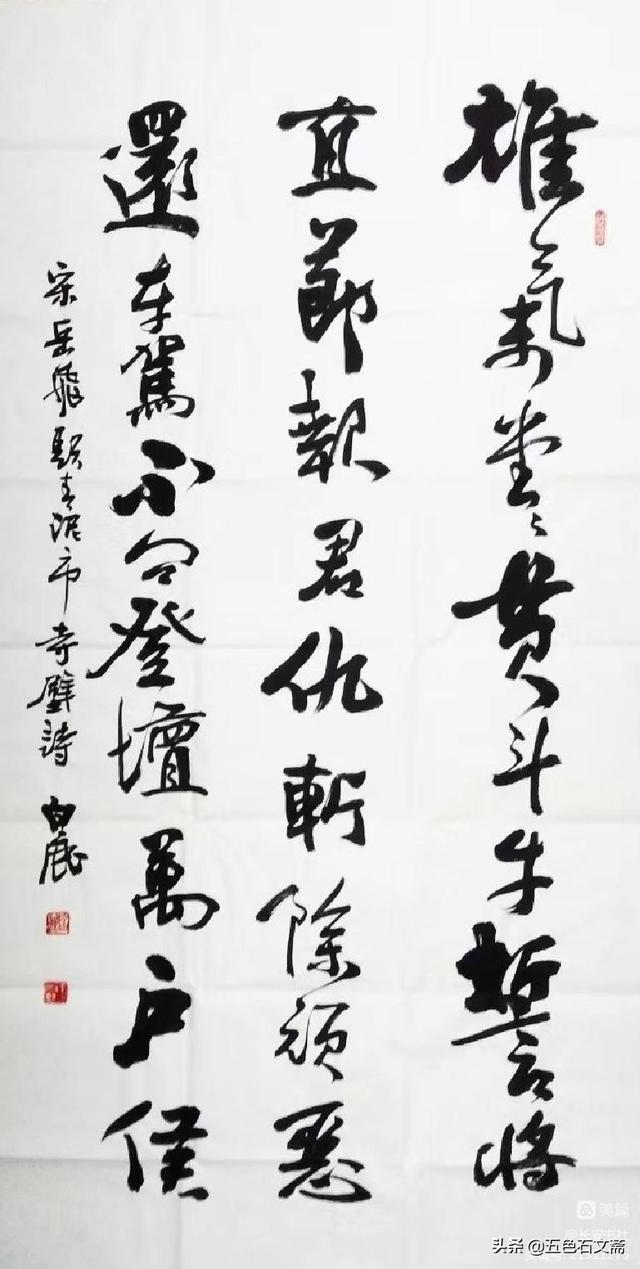 雄氣堂〻貫斗牛誓將
直節報君仇斬除頑惡
還車駕不問登壇萬户侯
宋岳飛题青泥市寺壁詩 白鹿
美篇
头条 @五色石文斋